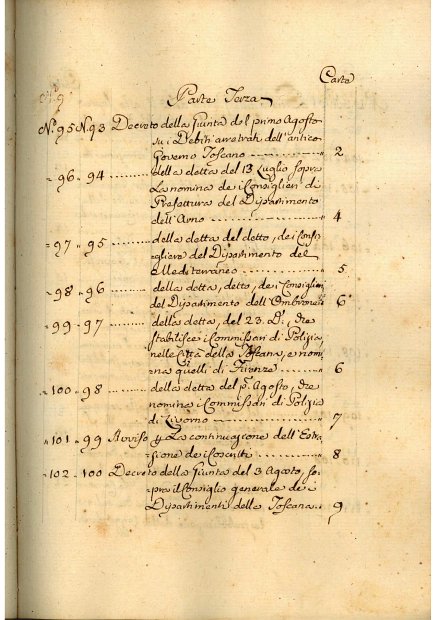 Carte
Parte Terza
N.° 95 N. 93 Decreto della Giunta del primo Agosto
su i Debiti arretrati dell'antico
Governo Toscano ---------- 2
" 96 - 94 ......... della detta del 13 Luglio sopra
La nomina de i Consiglieri di
Prefettura del Dipartimento
dell'Arno ---------- 4
" 97 " 95 ......... della detta del detto, de i Consi,,
glieri del Dipartimento del
Mediterraneo ---------- 5
" 98 " 96 ......... della detta, detto, de i Consiglieri
del Dipartimento dell'Ombrone 6
" 99 - 97 ......... della detta, del 23. D.°, che
stabilisce i Commissari di Polizia
nelle Città della Toscana, e nomi,,
na quelli di Firenze ---- 6
" 100 " 98 ......... della detta del p.° Agosto, che
nomina i Commissari di Polizia
di Livorno ---------- 7
" 101 " 99 Avviso p La continuazione dell'Estra,,
zione de i Coscritti ---- 8
" 102 - 100 Decreto della Giunta del 3 Agosto, so,,
pra il Consiglio generale de i
Dipartimenti della Toscana .. 9